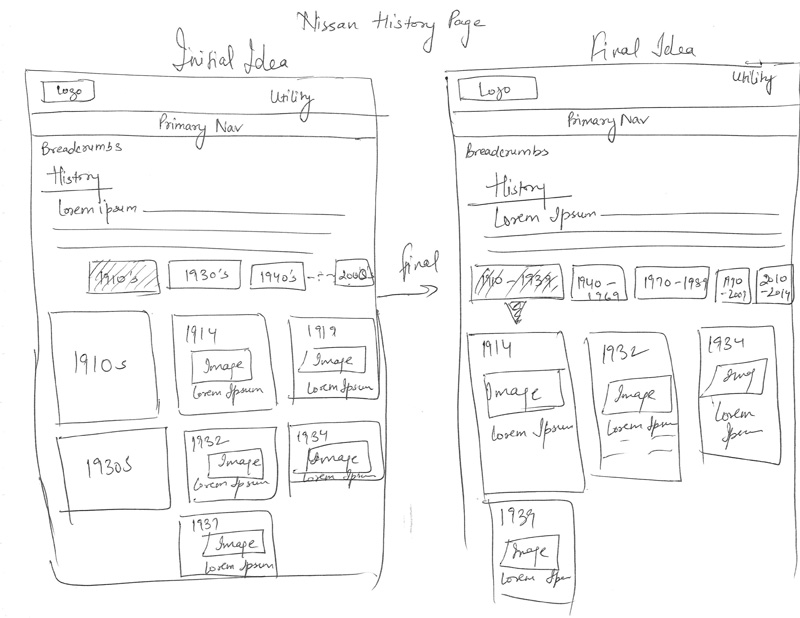 Nissan History Page
Initial Idea
Logo
Utility
Primary Nav
Breadcrumbs
History
Lorem ipsum
1910's
1930's
1940's
2000s
1910s
1914
Image
Lorem Ipsum
1919
Image
Lorem Ipsum
1930s
1932
Image
Lorem Ipsum
1934
Image
Lorem Ipsum
1937
Image
Lorem Ipsum
final
Final Idea
Logo
Utility
Primary Nav
Breadcrumbs
History
Lorem Ipsum
1910-1939
1940-
1969
1970-1989
1990
-2009
2010
-2014
1914
Image
Lorem Ipsum
1932
Image
Lorem Ipsum
1934
Lorem
Ipsum
1939
Image
Lorem Ipsu